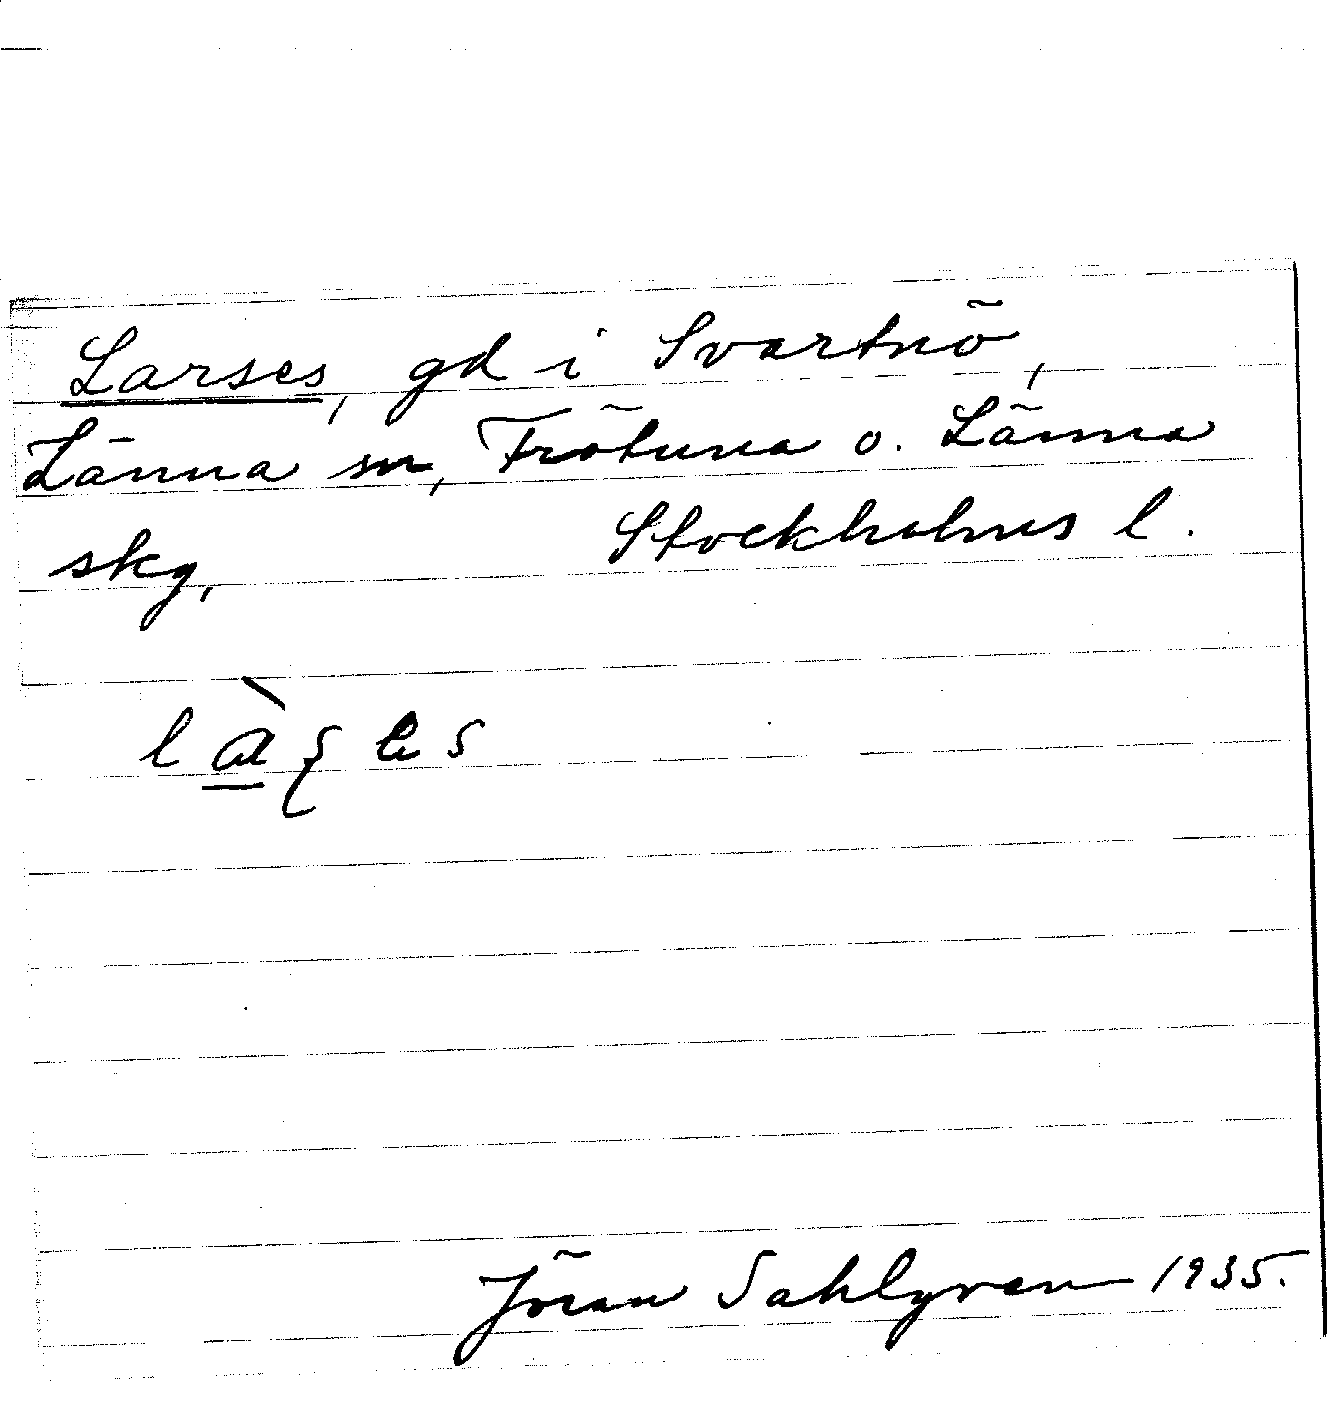 Larses, gd i Svartnö,
Länna sn, Frötuna o. Länna
skg, Stockholms l.
Jöran Sahlgren 1935.